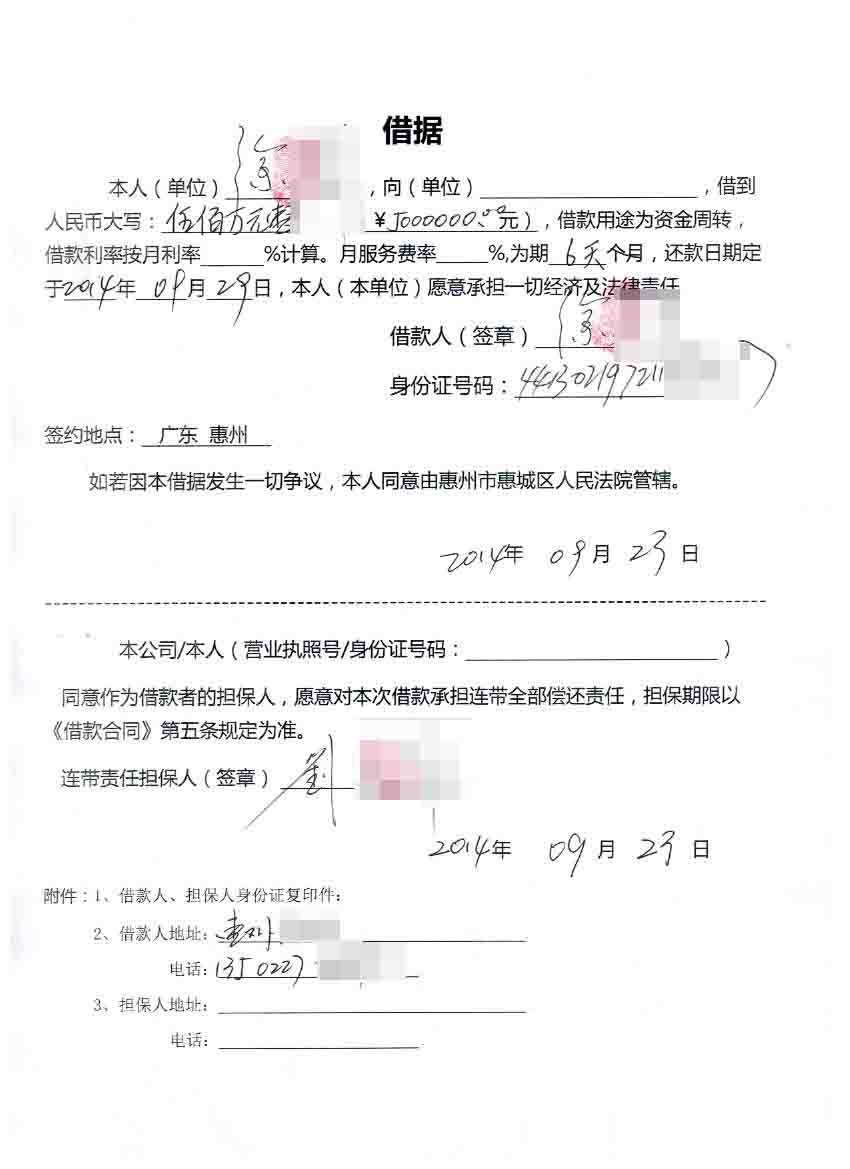 借据
本人（单位）徐，向（单位），借到
人民币大写：伍佰万元 ￥5000000.00元），借款用途为资金周转，
借款利率按月利率%计算。月服务费率%,为期6天个月，还款日期定
于2014年09月29日，本人（本单位）愿意承担一切经济及法律责任
借款人（签章）徐
身份证号码：44130219721
签约地点：广东 惠州
如若因本借据发生一切争议，本人同意由惠州市惠城区人民法院管辖。
2014年 09月 23日
本公司/本人（营业执照号/身份证号码：）
同意作为借款者的担保人，愿意对本次借款承担连带全部偿还责任，担保期限以
《借款合同》第五条规定为准。
连带责任担保人（签章）刘
2014年 09月 23日
附件：1、借款人、担保人身份证复印件：
2、借款人地址：惠州
电话：1350227
3、担保人地址：
电话：